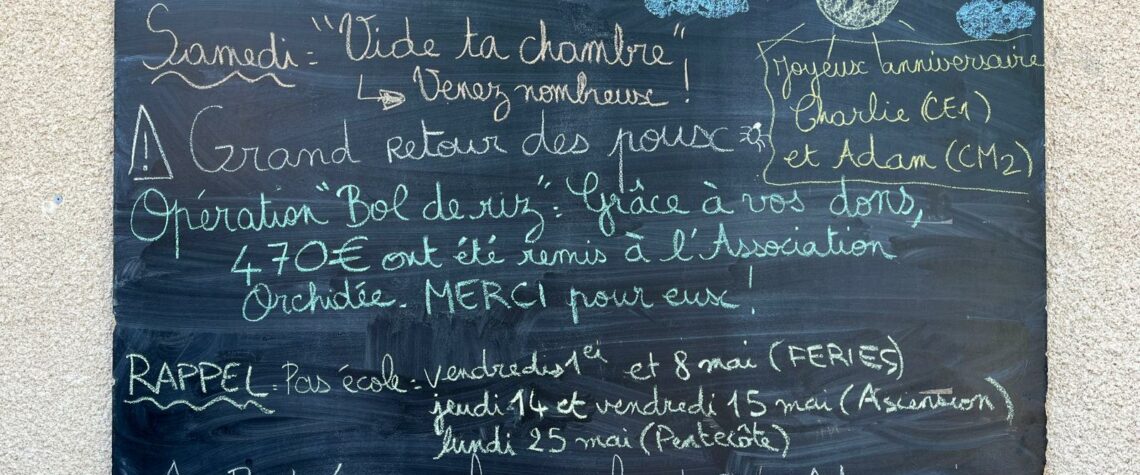 Samedi = "Vide ta chambre"
↳ Venez nombreux !
Joyeux anniversaire
Charlie (CE1)
et Adam (CM2)
⚠ Grand retour des poux
Opération "Bol de riz" : Grâce à vos dons,
470€ ont été remis à l'Association
Orchidée. MERCI pour eux !
RAPPEL = Pas école = vendredis 1er et 8 mai (FERIES)
jeudi 14 et vendredi 15 mai (Ascension)
lundi 25 mai (Pentecôte)